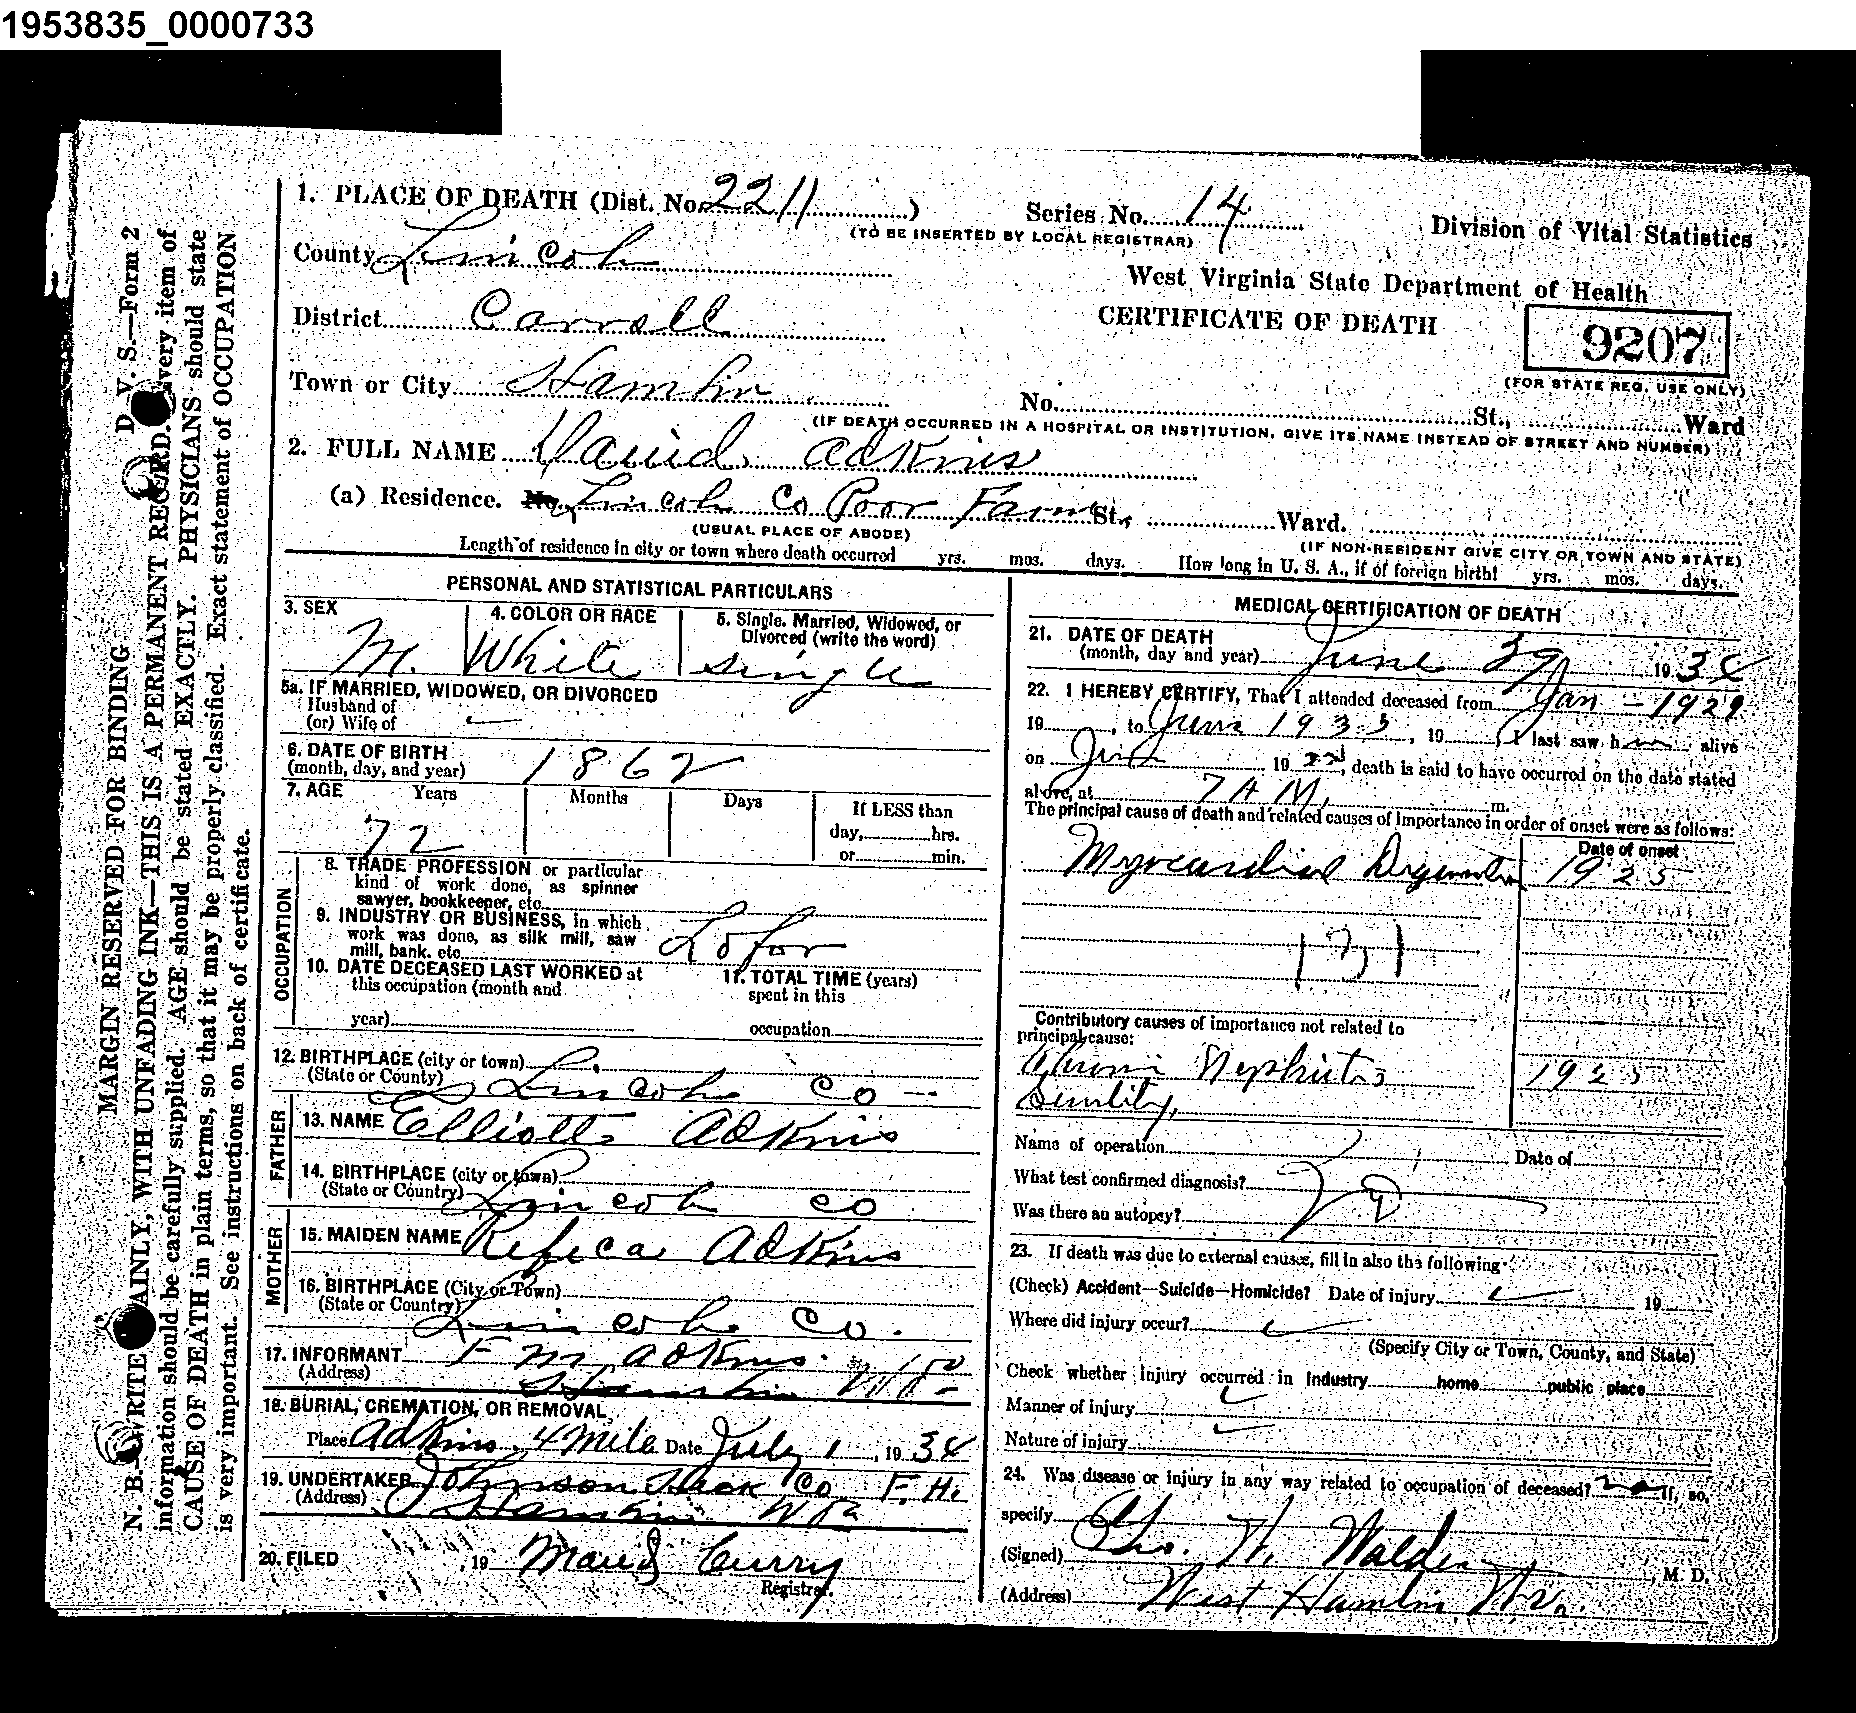 1953835_0000733
1. PLACE OF DEATH (Dist. No. 2211)
Series No. 14
(TO BE INSERTED BY LOCAL REGISTRAR)
Division of Vital Statistics
County Lincoln
West Virginia State Department of Health
CERTIFICATE OF DEATH
9207
(FOR STATE REG. USE ONLY)
District Carroll
Town or City Hamlin
No. St., Ward
(IF DEATH OCCURRED IN A HOSPITAL OR INSTITUTION, GIVE ITS NAME INSTEAD OF STREET AND NUMBER)
2. FULL NAME David Adkins
(a) Residence. No. Lincoln Co Poor Farm St., Ward.
(USUAL PLACE OF ABODE)
(IF NON-RESIDENT GIVE CITY OR TOWN AND STATE)
Length of residence in city or town where death occurred yrs. mos. days. How long in U. S. A., if of foreign birth? yrs. mos. days.
PERSONAL AND STATISTICAL PARTICULARS
3. SEX
M.
4. COLOR OR RACE
White
5. Single, Married, Widowed, or
Divorced (write the word)
Single
5a. IF MARRIED, WIDOWED, OR DIVORCED
Husband of
(or) Wife of
6. DATE OF BIRTH
(month, day, and year) 1862
7. AGE Years Months Days If LESS than
day, hrs.
or min.
72
OCCUPATION
8. TRADE PROFESSION or particular
kind of work done, as spinner
sawyer, bookkeeper, etc.
9. INDUSTRY OR BUSINESS, in which
work was done, as silk mill, saw
mill, bank, etc.
10. DATE DECEASED LAST WORKED at
this occupation (month and
year)
11. TOTAL TIME (years)
spent in this
occupation
12. BIRTHPLACE (city or town)
(State or County) Lincoln Co
FATHER
13. NAME Elliott Adkins
14. BIRTHPLACE (city or town)
(State or Country) Lincoln Co
MOTHER
15. MAIDEN NAME Rebeca Adkins
16. BIRTHPLACE (City or Town)
(State or Country) Lincoln Co.
17. INFORMANT F M Adkins
(Address) Hamlin
18. BURIAL, CREMATION, OR REMOVAL
Place Adkins 4 Mile Date July 1, 1934
19. UNDERTAKER Johnson Co F. H.
(Address) Hamlin W Va
20. FILED , 19 Maud Curry
Registrar.
MEDICAL CERTIFICATION OF DEATH
21. DATE OF DEATH
(month, day and year) June 29 1934
22. I HEREBY CERTIFY, That I attended deceased from Jan - 1929
19 , to June 1933, 19 , I last saw him alive
on 19 , death is said to have occurred on the date stated
above, at 7 A M, m.
The principal cause of death and related causes of importance in order of onset were as follows:
Date of onset
Myocardial Degeneration 1925
131
Contributory causes of importance not related to
principal cause:
Chronic Nephritis 1925
Senility,
Name of operation Date of
What test confirmed diagnosis?
Was there an autopsy?
23. If death was due to external causes, fill in also the following:
(Check) Accident—Suicide—Homicide? Date of injury 19
Where did injury occur?
(Specify City or Town, County, and State)
Check whether injury occurred in Industry home public place
Manner of injury
Nature of injury
24. Was disease or injury in any way related to occupation of deceased? no If, so,
specify
(Signed) Geo. H. Walden, M. D.
(Address) West Hamlin W. Va.
D. V. S.—Form 2
MARGIN RESERVED FOR BINDING
N. B.—WRITE PLAINLY, WITH UNFADING INK—THIS IS A PERMANENT RECORD. Every item of
information should be carefully supplied. AGE should be stated EXACTLY. PHYSICIANS should state
CAUSE OF DEATH in plain terms, so that it may be properly classified. Exact statement of OCCUPATION
is very important. See instructions on back of certificate.